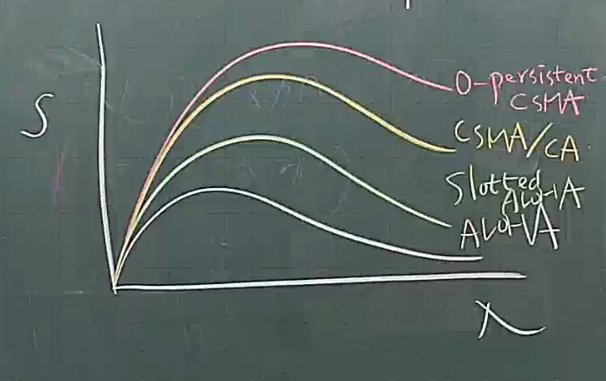 S
0-persistent
CSMA
CSMA/CA
Slotted
ALOHA
ALOHA
λ